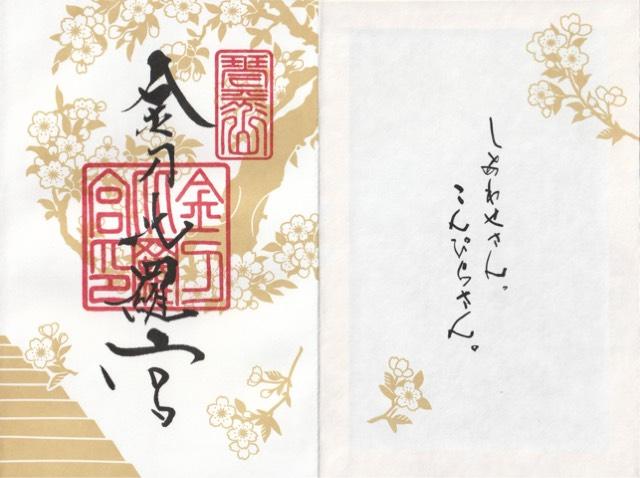 琴平山
金刀比羅宮
金刀比羅宮印
しあわせさん。
こんぴらさん。